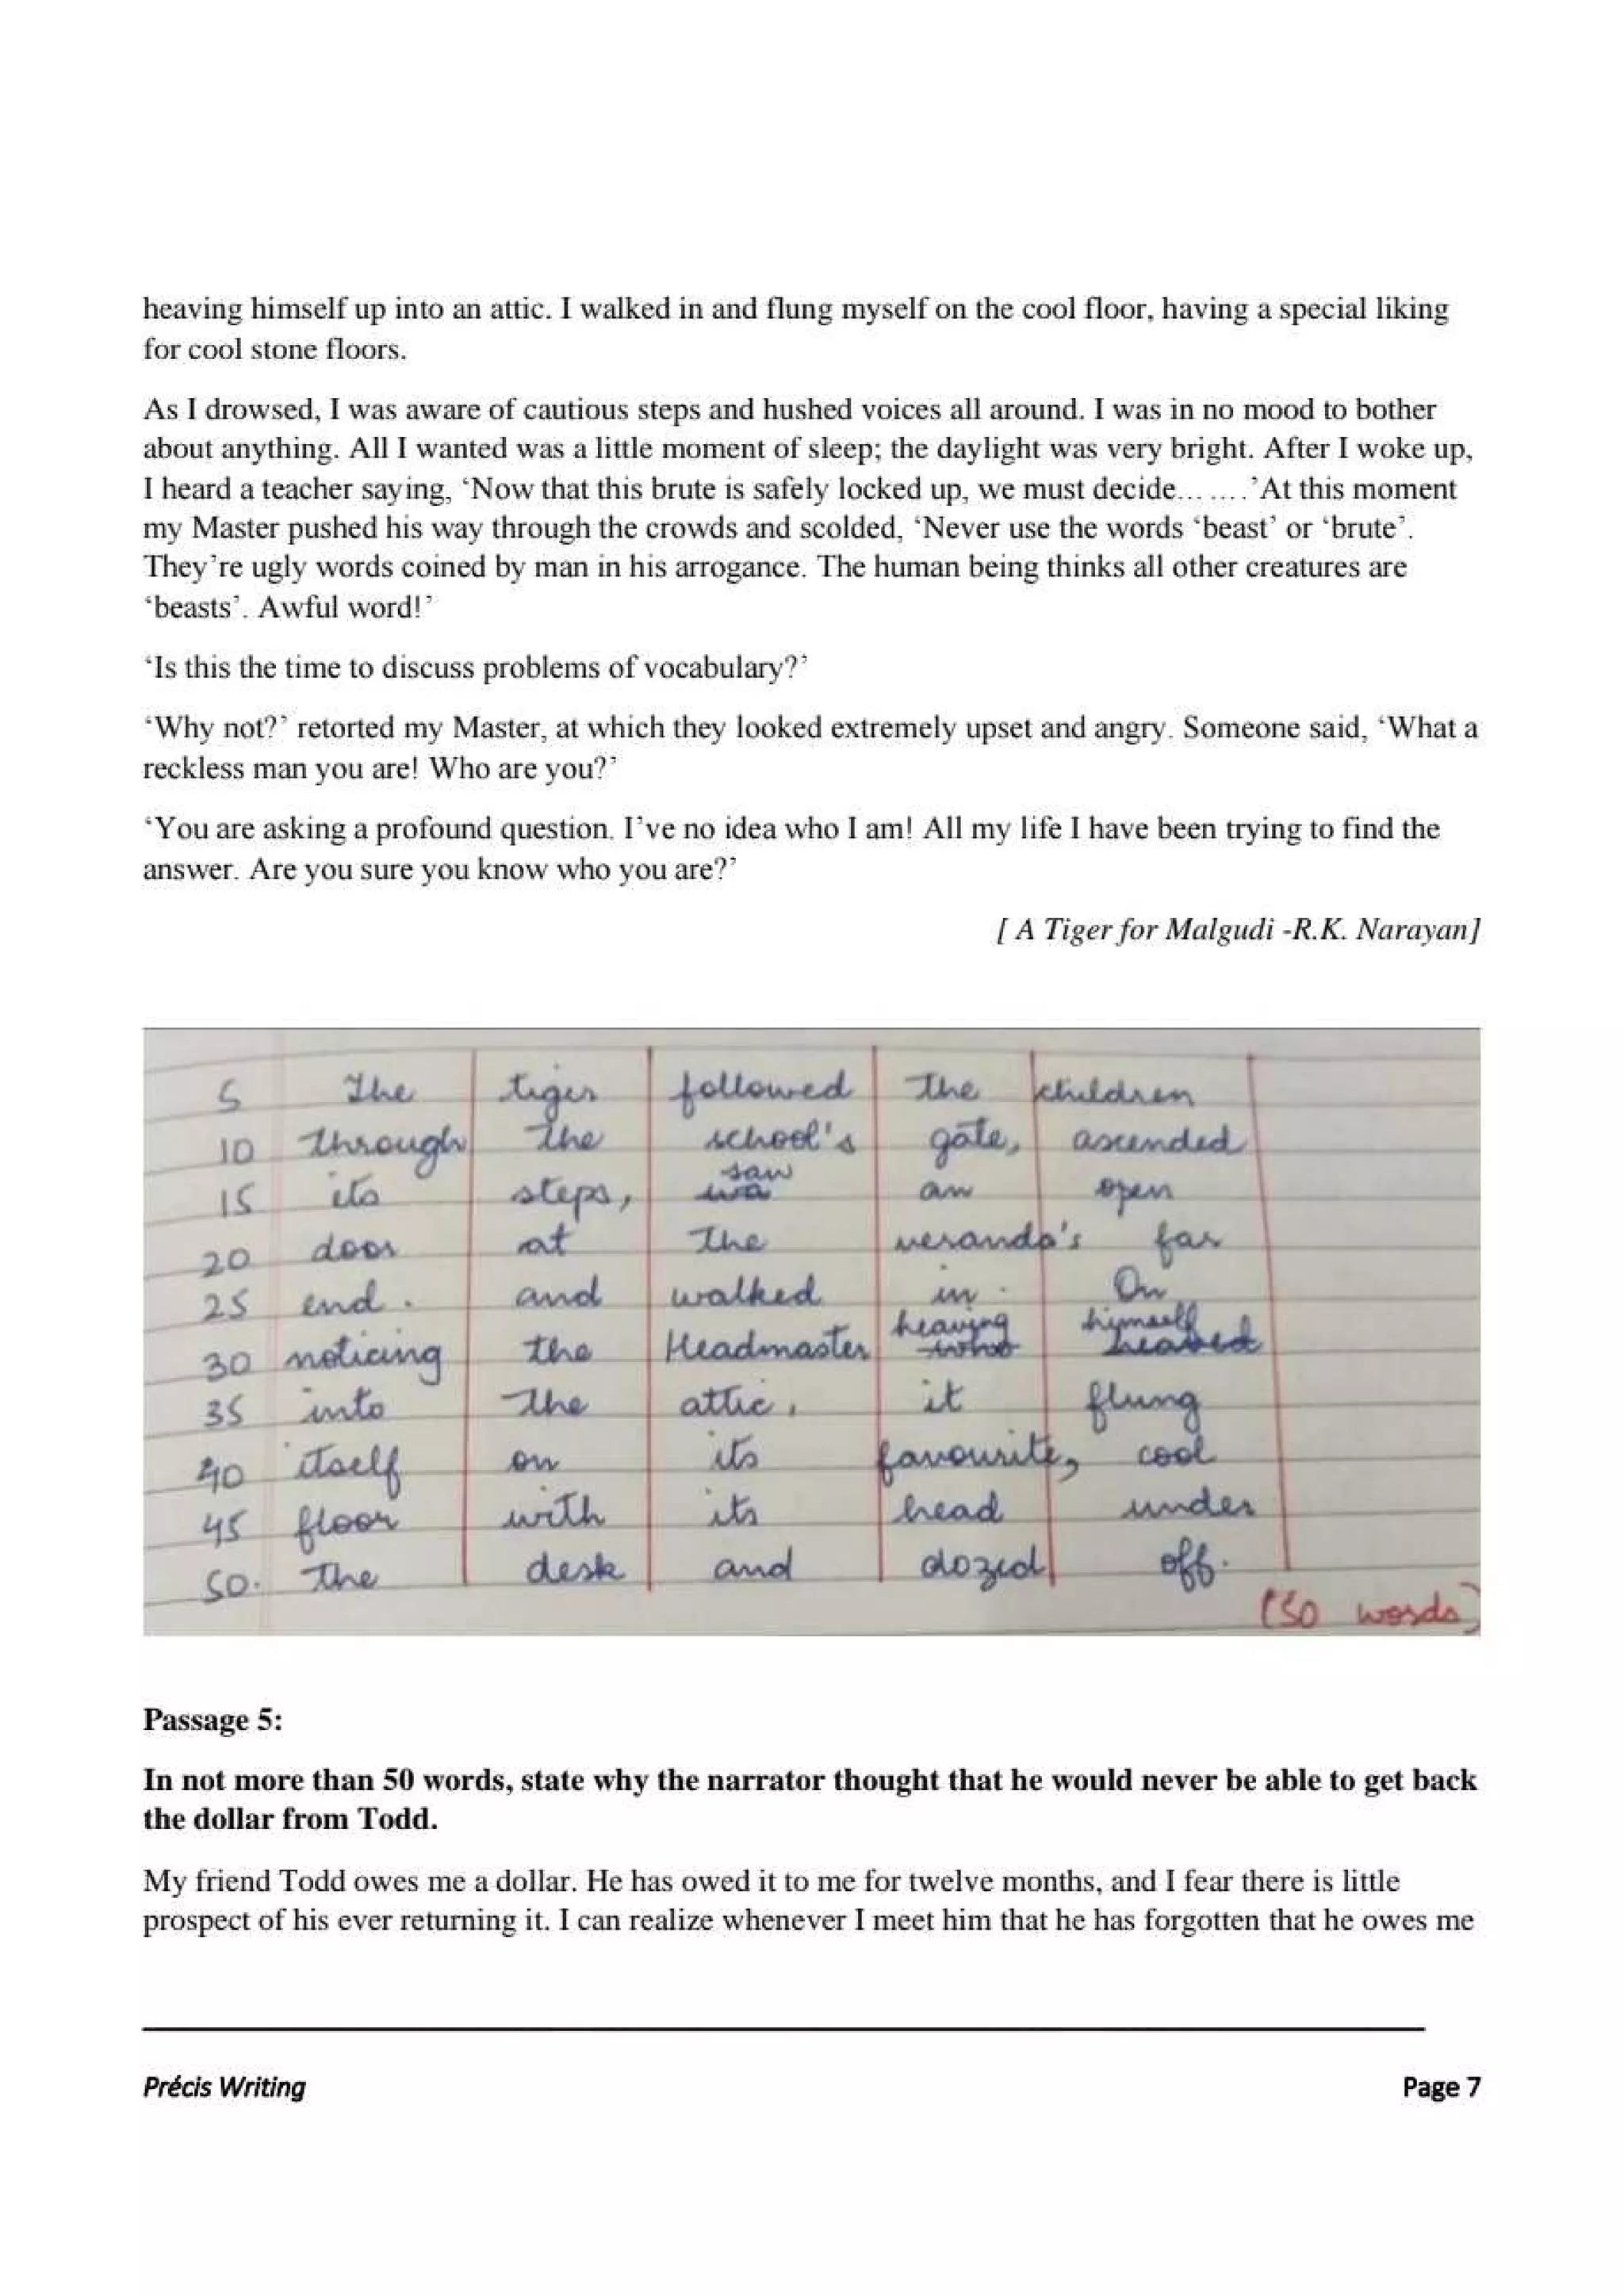 heaving himself up into an attic. I walked in and flung myself on the cool floor, having a special liking
for cool stone floors.
As I drowsed, I was aware of cautious steps and hushed voices all around. I was in no mood to bother
about anything. All I wanted was a little moment of sleep; the daylight was very bright. After I woke up,
I heard a teacher saying, ‘Now that this brute is safely locked up, we must decide… ….’At this moment
my Master pushed his way through the crowds and scolded, ‘Never use the words ‘beast’ or ‘brute’.
They’re ugly words coined by man in his arrogance. The human being thinks all other creatures are
‘beasts’. Awful word!’
‘Is this the time to discuss problems of vocabulary?’
‘Why not?’ retorted my Master, at which they looked extremely upset and angry. Someone said, ‘What a
reckless man you are! Who are you?’
‘You are asking a profound question. I’ve no idea who I am! All my life I have been trying to find the
answer. Are you sure you know who you are?’
[ A Tiger for Malgudi -R.K. Narayan]
5 The tiger followed the children
10 through the school's gate, ascended
15 its steps, saw an open
20 door at the veranda's far
25 end. and walked in. On
30 noticing the Headmaster heaving himself
35 into the attic, it flung
40 itself on its favourite, cool
45 floor with its head under
50. The desk and dozed off.
(50 words)
Passage 5:
In not more than 50 words, state why the narrator thought that he would never be able to get back
the dollar from Todd.
My friend Todd owes me a dollar. He has owed it to me for twelve months, and I fear there is little
prospect of his ever returning it. I can realize whenever I meet him that he has forgotten that he owes me
Précis Writing Page 7